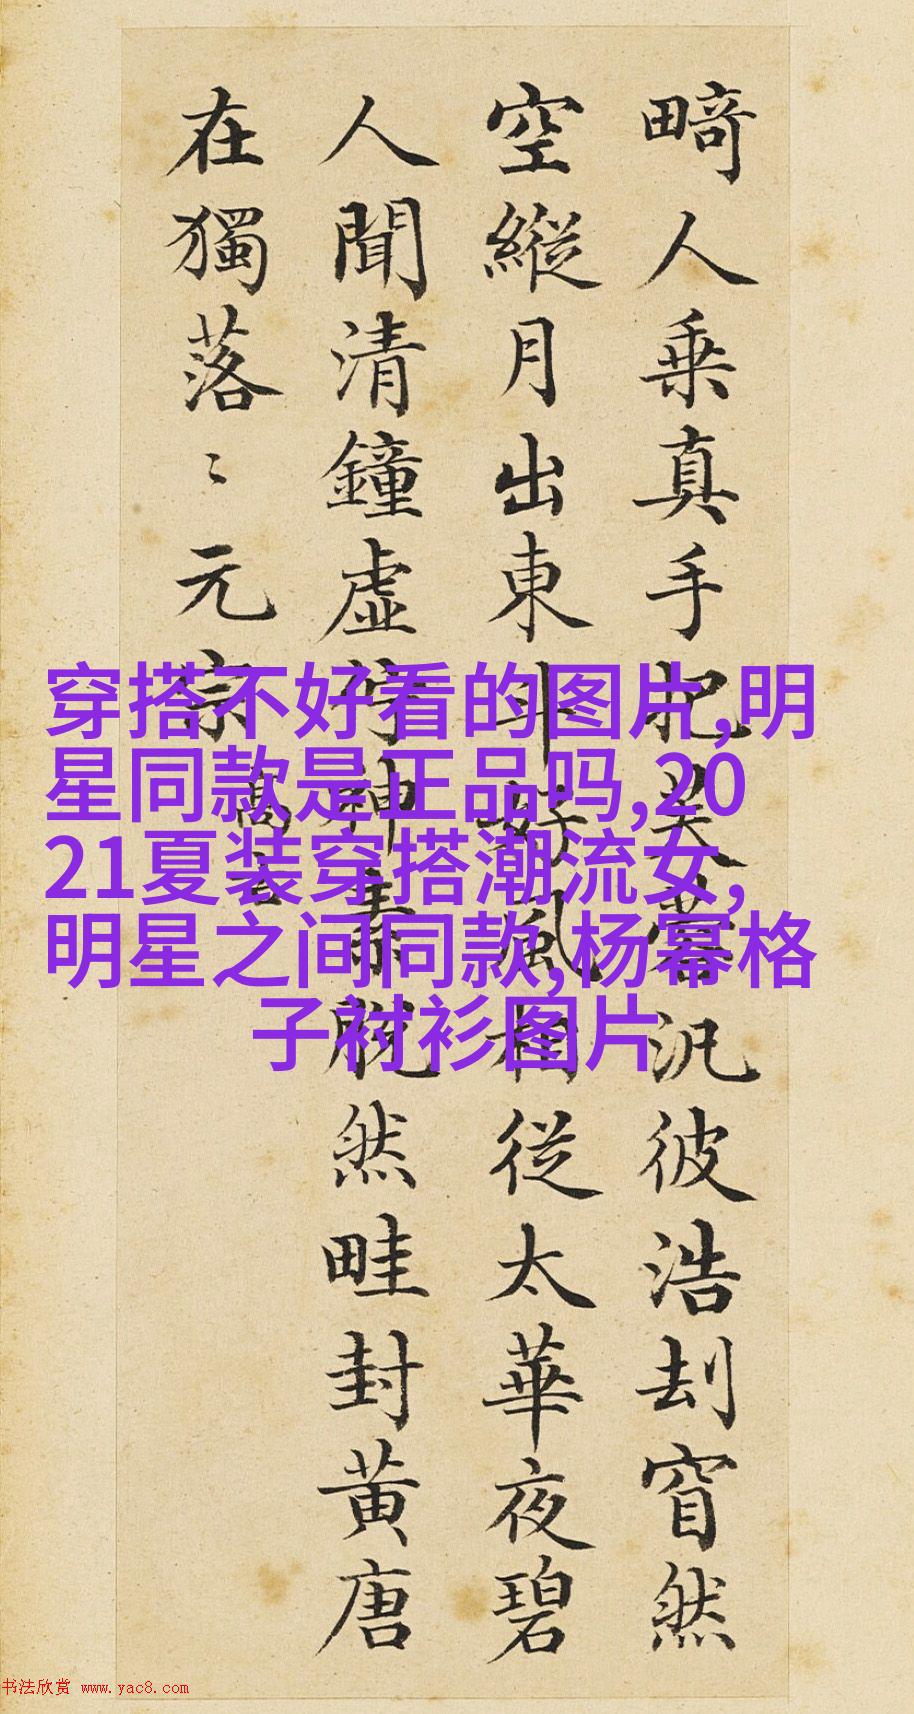 畸人乗真手把芙蓉汎彼浩刦窅然
空縱月出東斗好風相從太華夜碧
人聞清鐘虛佇神素脫然畦封黃唐
在獨落〻元宗
高古
穿搭不好看的图片,明
星同款是正品吗,20
21夏装穿搭潮流女,
明星之间同款,杨幂格
子衬衫图片
书法欣赏 www.yac8.com